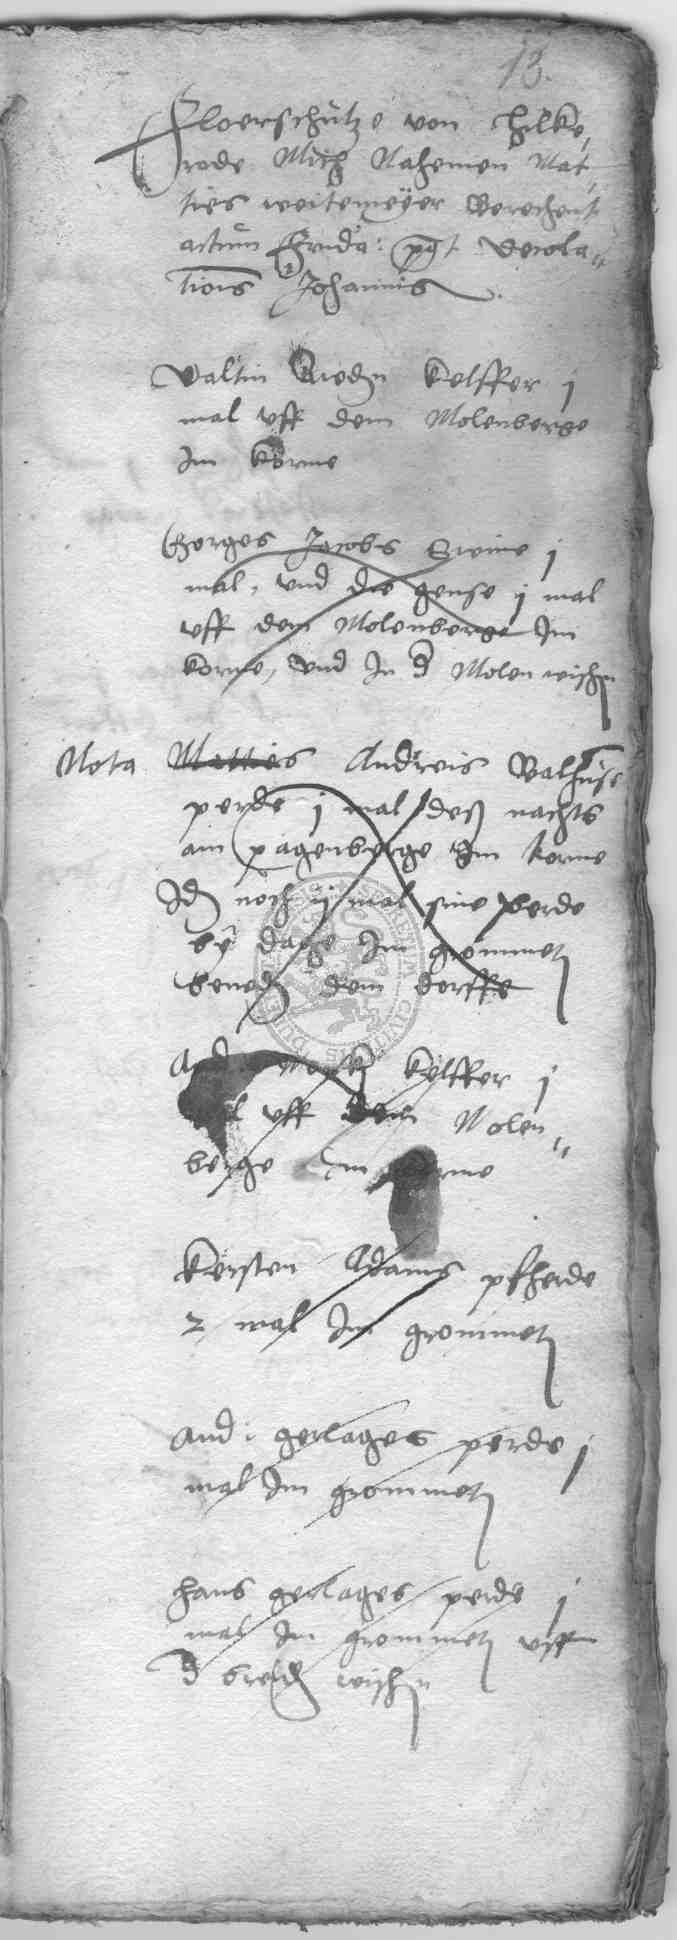 13.
Floerschutze von Hilke„
rode Mich Nahemen Mat„
ties weitemeyer Berechent
actum ... pt decola„
tionis Johannis
Valtin ... Kelffer j
mal vff dem Molenberge
Im Korne
Gorges Jacobs Swine j
mal, vnd die gense ij mal
vff dem Molenberge Im
korne, vnd In d Molen wischn
Nota Matties Andreis Walhuse
perde j mal deß nachts
am pagenberge Im korne
Idn noch ij mal sine perde
by dage Im grommet
benedn dem dorffe
And Kelffer j
vff dem Molen„
berge Im korne
Kersten Adams pfherde
2 mal Im grommet
And: gerlages perde j
mal Im grommet
Hans gerlages perde j
mal Im grommet vff
d breidn wischn